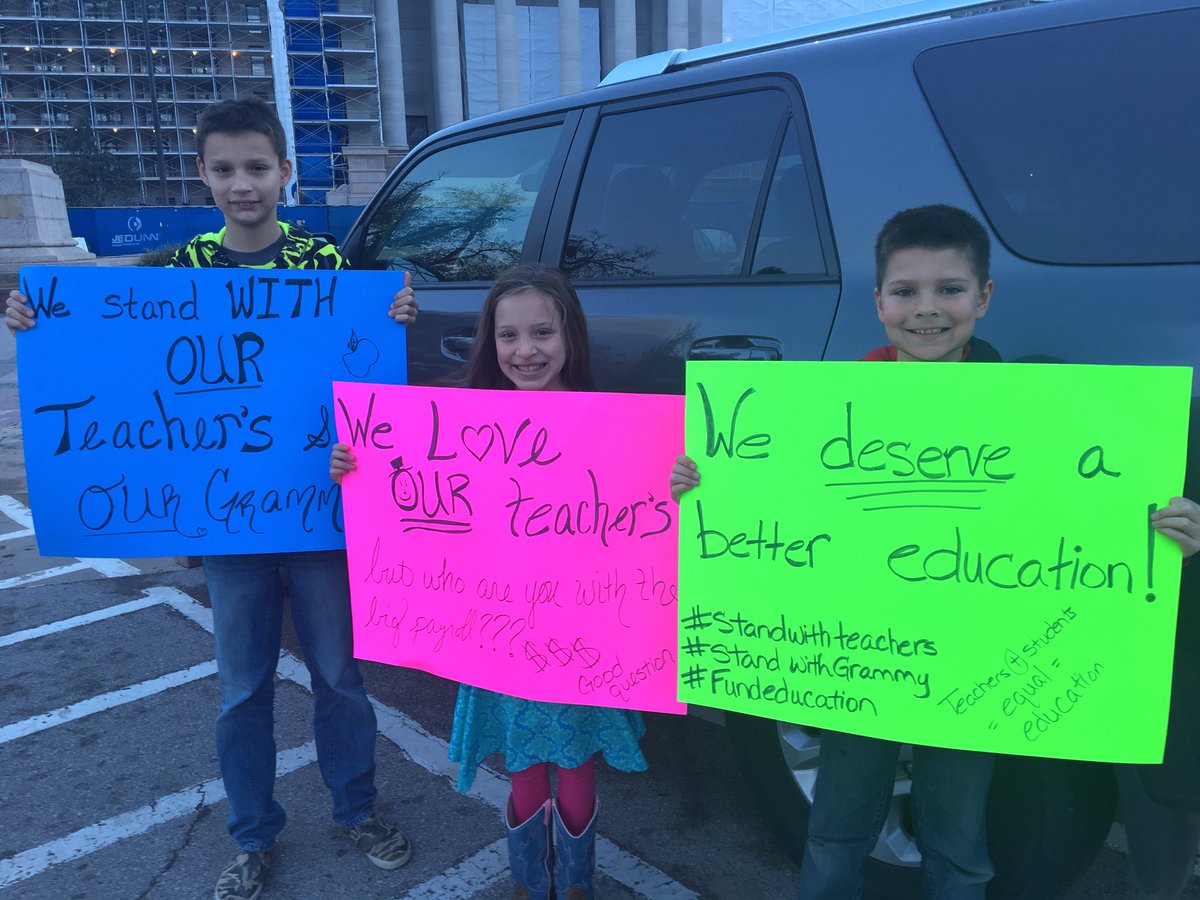 JE DUNN
We stand WITH
OUR
Teacher's &
OUR Grammy
We Love
OUR
teacher's
but who are you with the
big payroll???
$$$
Good
question
We deserve a
better education!
#Standwithteachers
#Stand withGrammy
#Fundeducation
Teachers + students
= equal =
education